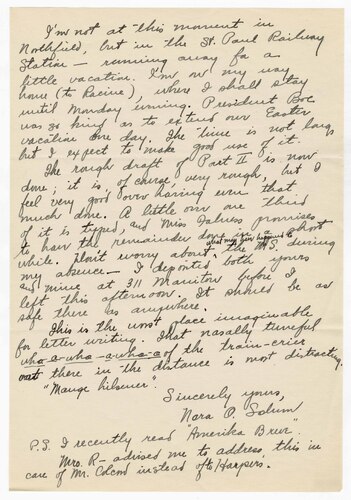 I'm not at this moment in
Northfield, but in the St. Paul Railway
Station — running away for a
little vacation. I'm on my way
home (to Racine), where I shall stay
until Monday evening. President Boe
was so kind as to extend our Easter
vacation one day. The time is not long
but I expect to make good use of it.
The rough draft of Part II is now
done; it is, of course, very rough, but I
feel very good over having even that
much done. A little over one third
of it is typed, and Miss promises
to have the remainder done in a short
while. Don't worry about the MS. during
my absence — I deposited both yours
and mine at 311 Manitou before I
left this afternoon. It should be as
safe there as anywhere.
This is the worst place imaginable
for letter writing. That nasally tuneful
who-a-wha-a-wha-a of the train-crier
out there in the distance is most distracting.
"Mange hilsener"
Sincerely yours,
Nora O. Solum.
P.S. I recently read "Amerika Brev."
Mrs. R— advised me to address this in
care of Mr. Colcord instead of to Harpers.